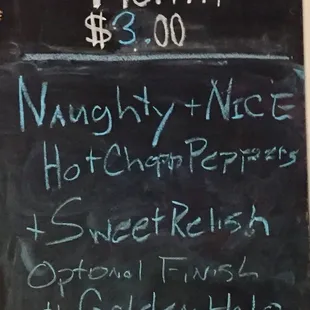 $3.00
Naughty + NICE
Hot Chopp Peppers
+ Sweet Relish
Optional Finish
Golden Halo